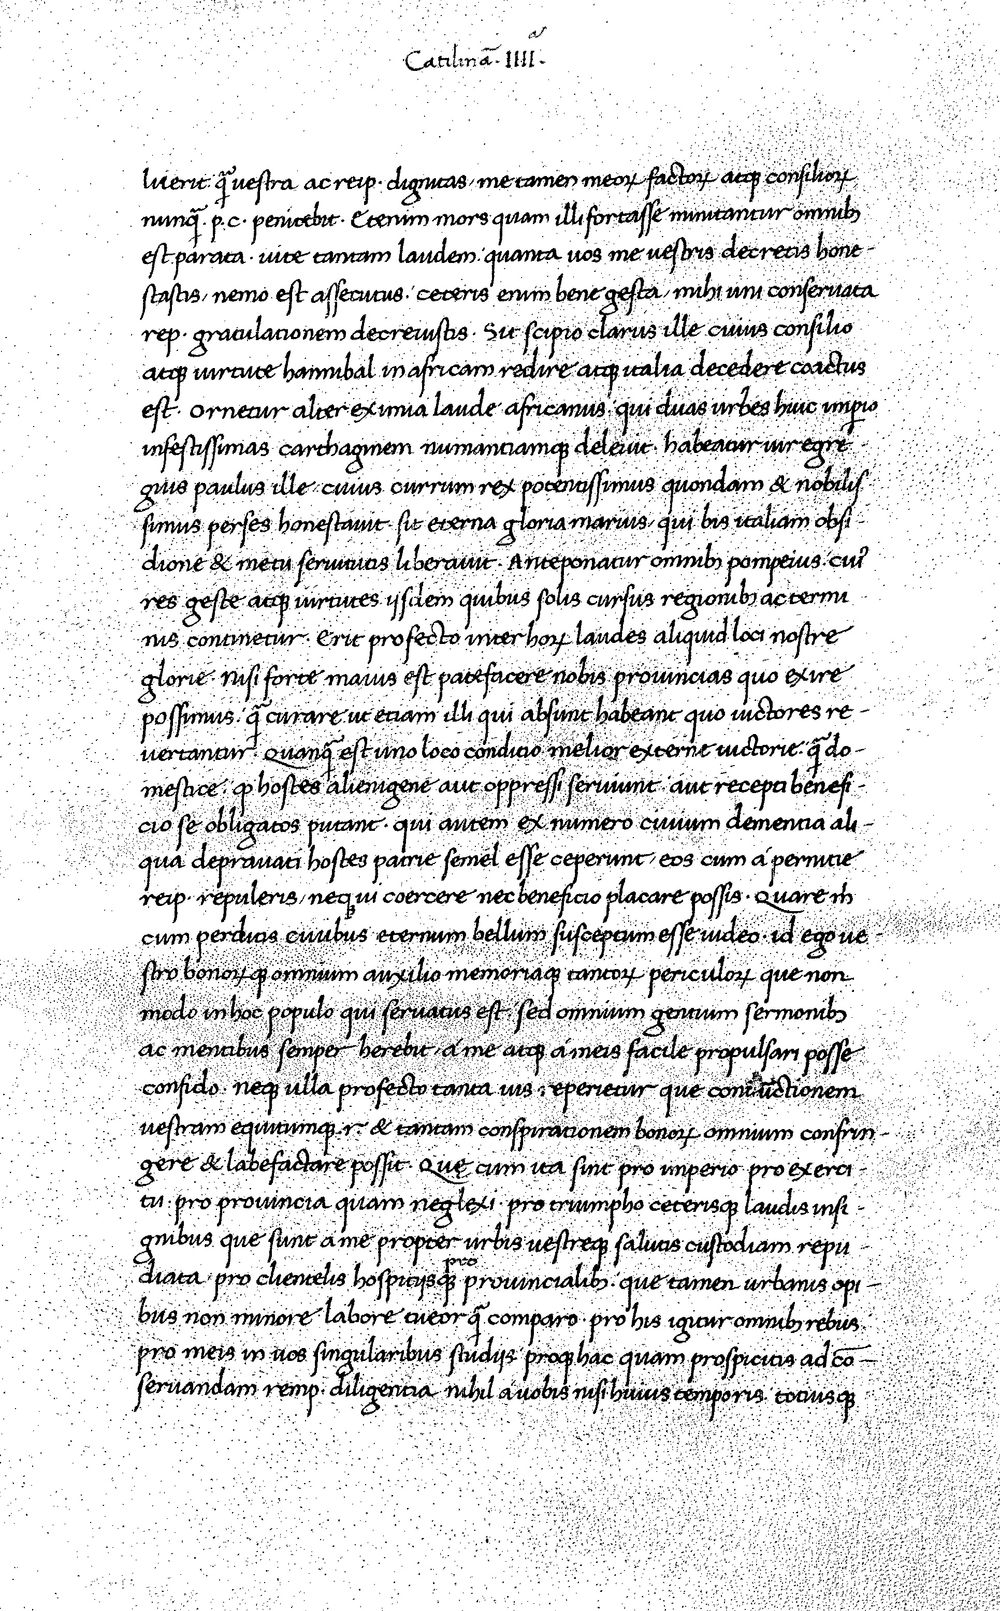 Catilinā · IIII · a
luerit · q̄ȝ uestra ac reip · dignitas / me tamen meoꝝ factoꝝ atqꝫ consilioꝝ
nunq̄ȝ · p · c · penitebit · Etenim mors quam illi fortasse minitantur omnibꝫ
est parata · uite tantam laudem · quanta uos me uestris decretis hone -
stastis / nemo est assecutus · ceteris enim bene gesta / mihi uni conseruata
rep · gratulationem decreuistis · Sit scipio clarus ille cuius consilio
atqꝫ uirtute hannibal in africam redire atqꝫ italia decedere coactus
est · Ornetur alter eximia laude africanus · qui duas urbes huic imꝑio
infestissimas carthaginem numantiamqꝫ deleuit · habeatur uir egre -
gius paulus ille · cuius currum rex potentissimus quondam & nobilis
simus perses honestauit · sit eterna gloria marius / qui bis italiam obsi -
dione & metu seruitutis liberauit · Anteponatur omnibꝫ pompeius · cuiꝰ
res geste atqꝫ uirtutes iisdem quibus solis cursus regionibꝫ ac termi
nis continetur · Erit profecto inter hoꝝ laudes aliquid loci nostre
glorie · nisi forte maius est patefacere nobis prouincias quo exire
possimus · q̄ȝ curare ut etiam illi qui absunt habeant quo uictores re -
uertantur · Quanq̄ȝ est uno loco conditio melior externe uictorie · q̄ȝ do -
mestice · ꝙ hostes alienigene aut oppressi seruiunt · aut recepti benefi -
cio se obligatos putant · qui autem ex numero ciuium dementia ali -
qua deprauati hostes patrie semel esse ceperunt / eos cum á pernitie
reip · repuleris / neqꝫ ui coercere nec beneficio placare possis · Quare m̄
cum perditis ciuibus eternum bellum susceptum esse uideo · id ego ue -
stro bonoꝝqꝫ omnium auxilio memoriaqꝫ tantoꝝ periculoꝝ que non
modo in hoc populo qui seruatus est · sed omnium gentium sermonibꝫ
ac mentibus semper herebit · á me atqꝫ á meis facile propulsari posse
confido · neqꝫ ulla profecto tanta uis reperietur que coniūctionem
uestram equitumqꝫ · r · & tantam conspirationem bonoꝝ omnium confrin -
gere & labefactare possit · Que cum ita sint pro imperio pro exerci -
tu · pro prouincia quam neglexi · pro triumpho ceterisqꝫ laudis insi -
gnibus que sunt a me propter urbis uestreqꝫ salutis custodiam repu
diata · pro clientelis hospitiisqꝫ pro prouincialibꝫ · que tamen urbanis opi -
bus non minore labore tueor q̄ȝ comparo · pro his igitur omnibꝫ rebus
pro meis in uos singularibus studiis proqꝫ hac quam prospicitis ad cō -
seruandam remp · diligentia nihil á uobis nisi huius temporis totiusqꝫ